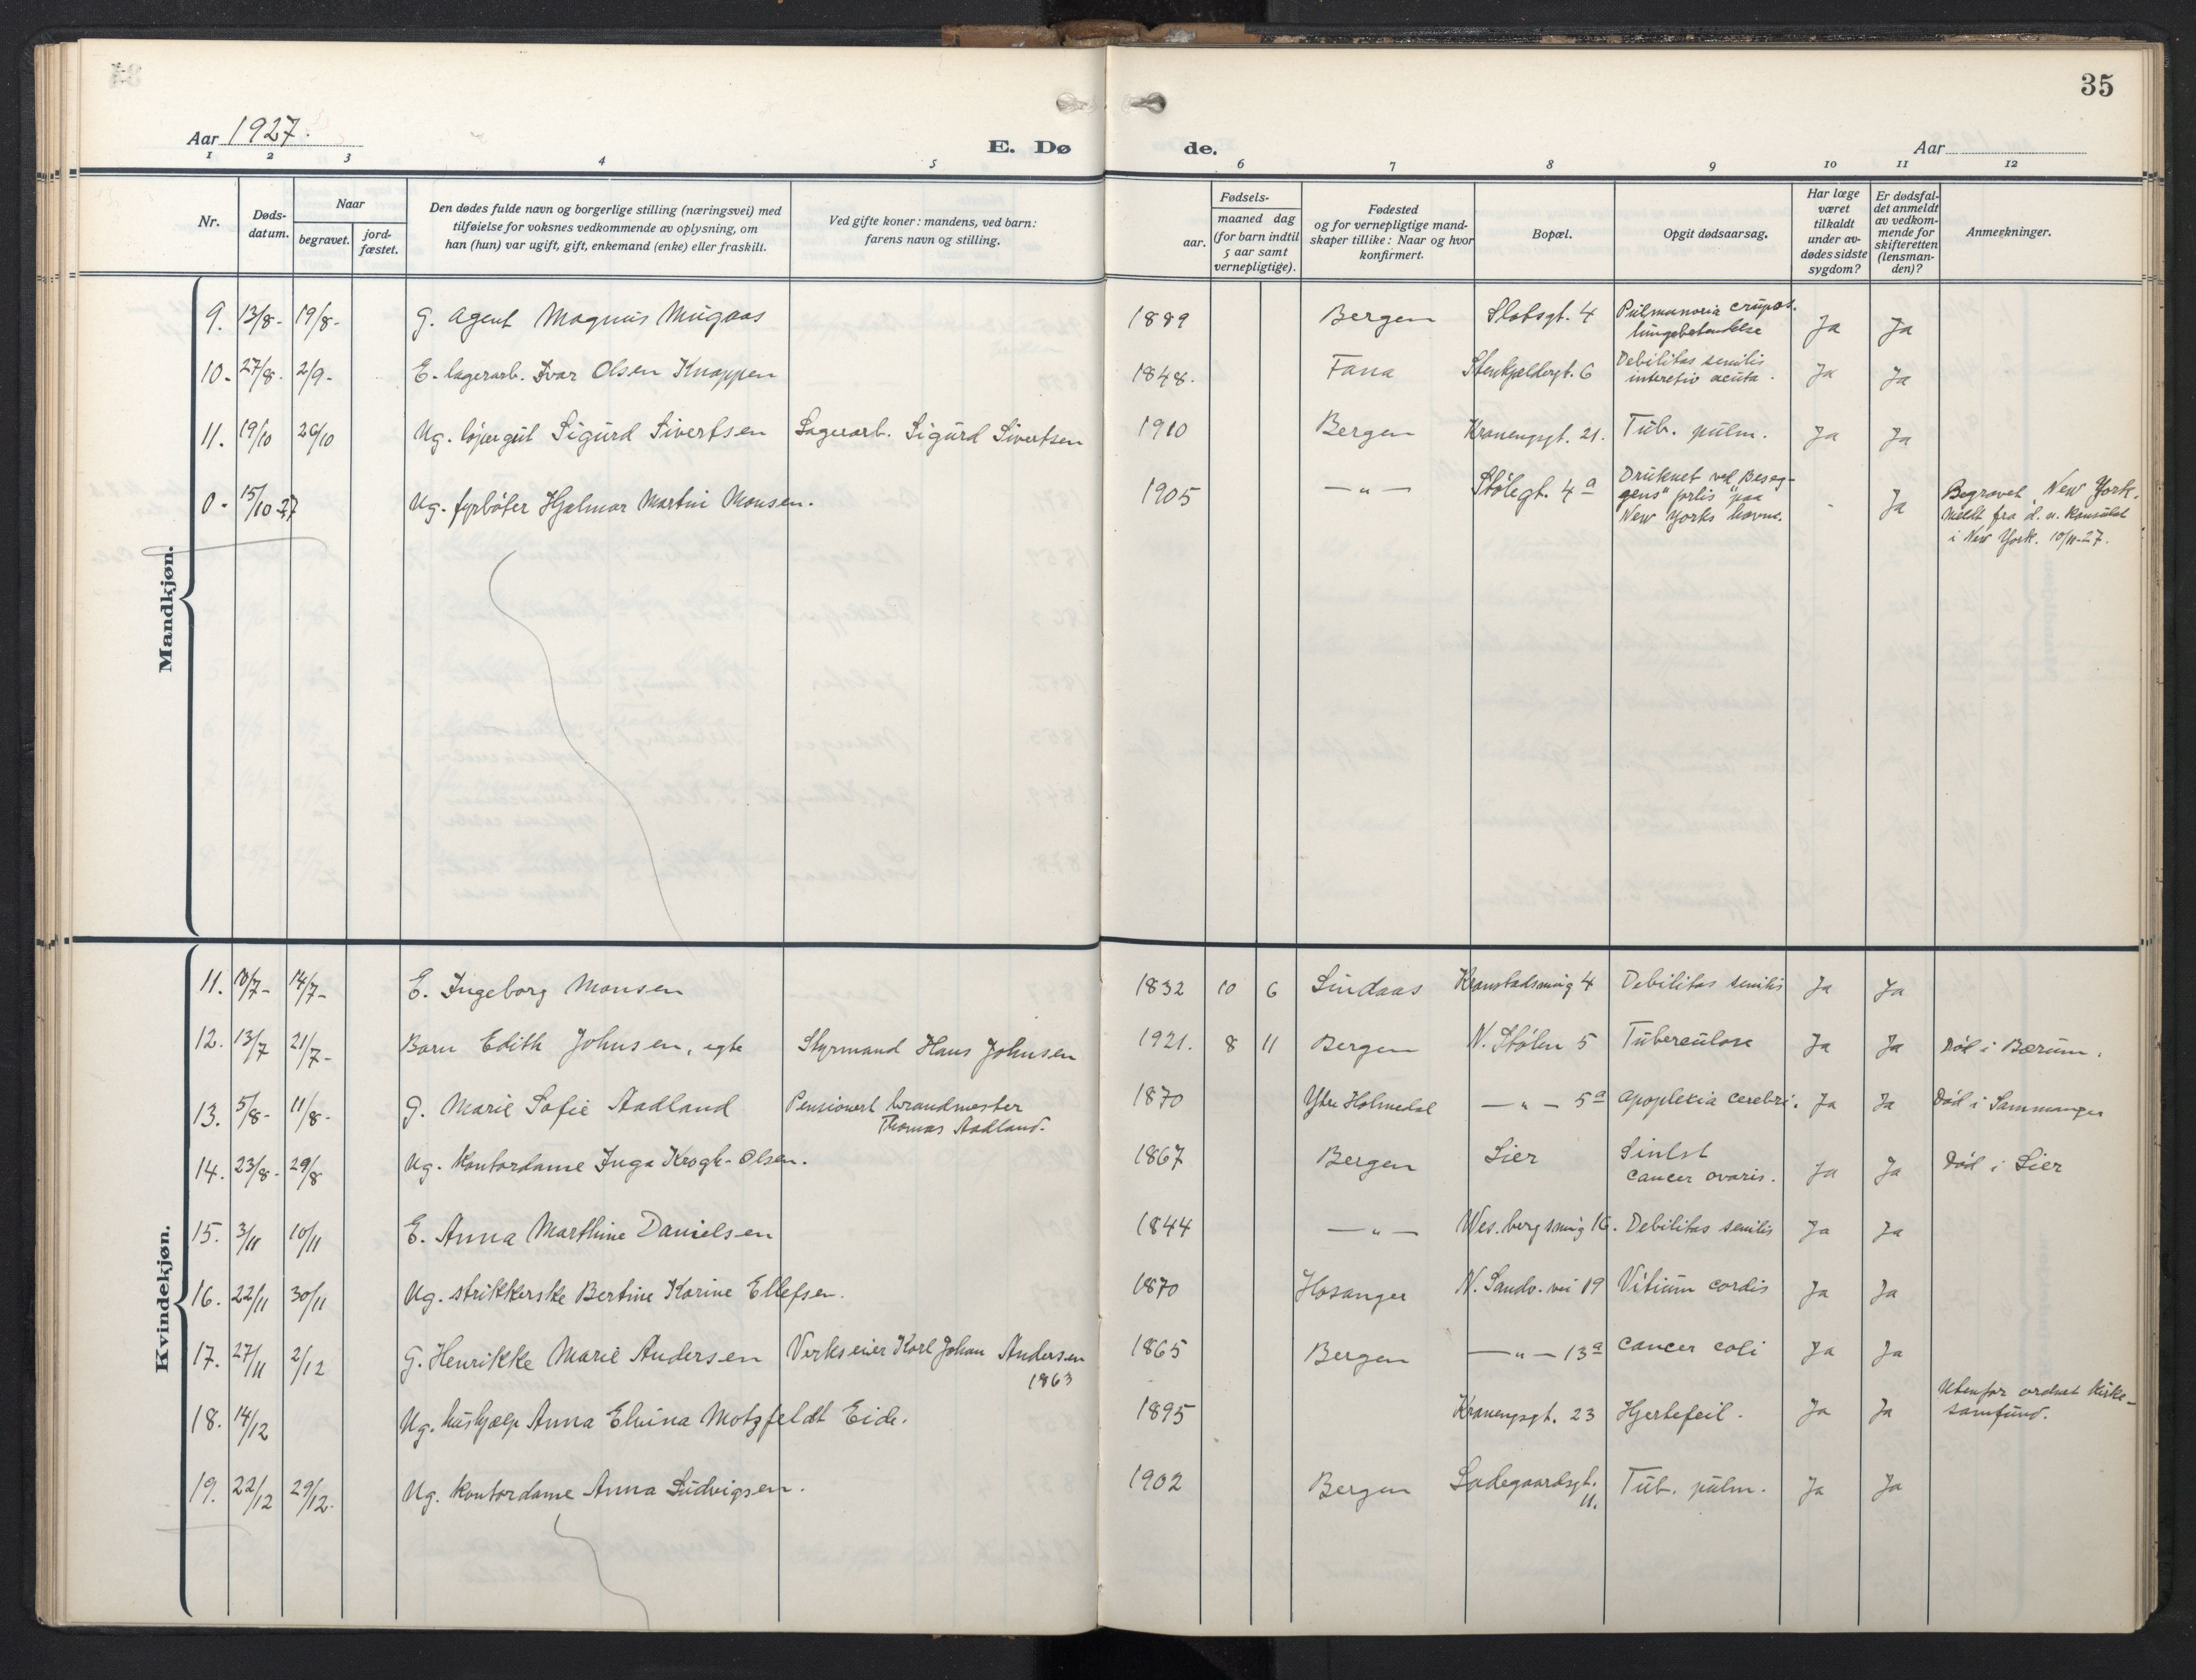 35
Aar 1927.
E. Dø de.
Aar
1 2 3 4 5 6 7 8 9 10 11 12
Nr.
Døds-
datum.
Naar
begravet.
jord-
fæstet.
Den dødes fulde navn og borgerlige stilling (næringsvei) med
tilføielse for voksnes vedkommende av oplysning, om
han (hun) var ugift, gift, enkemand (enke) eller fraskilt.
Ved gifte koner: mandens, ved barn:
farens navn og stilling.
Fødsels-
aar.
maaned dag
(for barn indtil
5 aar samt
vernepligtige).
Fødested
og for vernepligtige mand-
skaper tillike: Naar og hvor
konfirmert.
Bopæl.
Opgit dødsaarsag.
Har læge
været
tilkaldt
under av-
dødes sidste
sygdom?
Er dødsfal-
det anmeldt
av vedkom-
mende for
skifteretten
(lensman-
den)?
Anmerkninger.
Mandkjøn.
9. 13/8- 19/8- G. Agent Magnus Mugaas 1889 Bergen Slotsgt. 4 Ja Ja
10- 27/8- 2/9- E. lagerarb. Ivar Olsen Knappen 1848. Fana Stenkjeldergt. 6 Debilitas senilis
acuta. Ja Ja
11. 19/10 26/10 Ug. løpergut Sigurd Sivertsen Lagerarb. Sigurd Sivertsen 1910 Bergen Kronengsgt. 21. Tub. pulm. Ja Ja
0- 15/10 27 Ug. fyrbøter Hjalmar Martin Monsen. 1905 — " — Stølegt. 4a Druknet ved "Beseg-
gens" forlis paa
New Yorks havne. - Ja Begravet New York.
Meldt fra d. n. Konsulat
i New York. 10/11-27.
Kvindekjøn.
11. 10/7- 14/7- E. Ingeborg Monsen 1832 10 6 Lindaas 4 Debilitas senilis Ja Ja
12. 13/7 21/7- Barn Edith Johnsen, egte Styrmand Hans Johnsen 1921. 8 11 Bergen N. Stølen 5 Tuberculose Ja Ja Død i Bærum.
13. 5/8- 11/8- G. Marie Sofie Aadland Pensionert brandmester
Thomas Aadland. 1870 Ytre Holmedal — " — 5a Apoplexia cerebri. Ja Ja Død i Sammanger
14. 23/8- 29/8 Ug. Kontordame Inga Krogh-Olsen. 1867 Bergen Lier
cancer ovaris. Ja Ja Død i Lier
15. 3/11 10/11 E. Anna Marthine Danielsen 1844 — " — Wesenbergsmug 16. Debilitas senilis Ja Ja
16. 22/11 30/11 Ug. strikkerske Bertine Karine Ellefsen. 1870 Hosanger N. Sandv. vei 19 Vitium cordis Ja Ja
17. 27/11 2/12 G. Henrikke Marie Andersen Verkseier Karl Johan Andersen
1863 1865 Bergen — " — 13a Cancer coli Ja Ja
18. 14/12 Ug. hushjælp Anna Elvina Motzfeldt Eide. 1895 Kronengsgt. 23 Hjertefeil. Ja Ja Utenfor ordnet kirke-
samfund.
19. 22/12 29/12. Ug. Kontordame Anna Ludvigsen. 1902 Bergen Ladegaardsgt.
11. Tub. pulm. Ja Ja